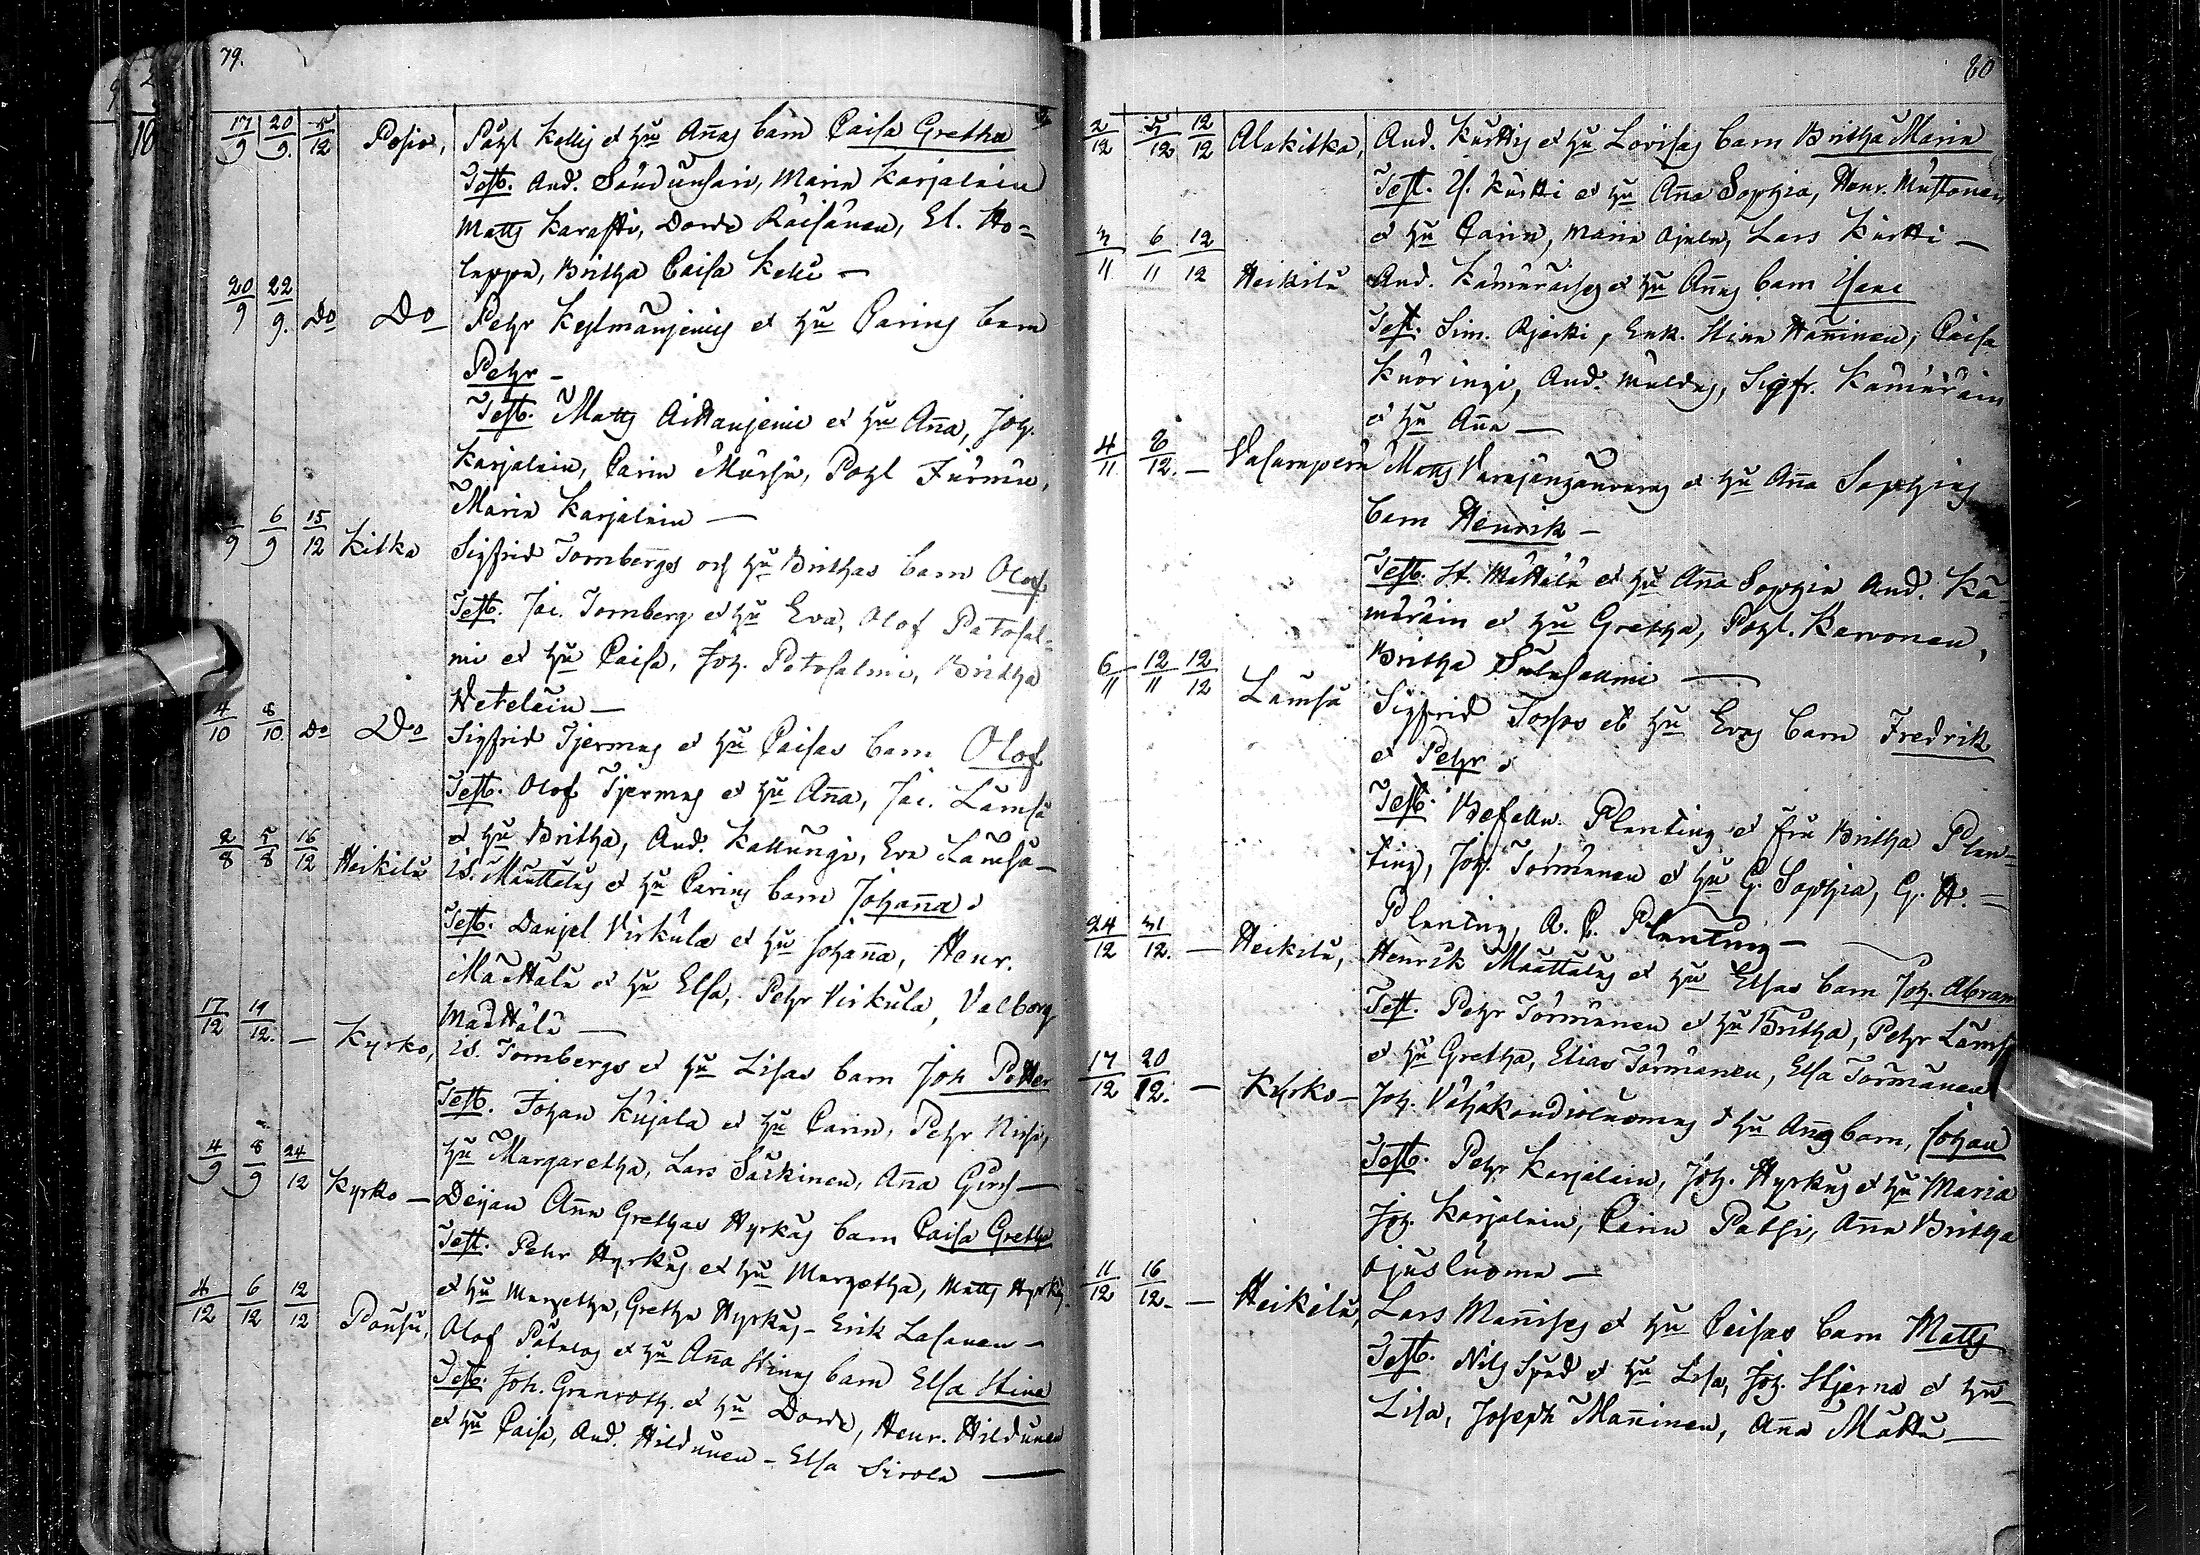 79.
17/9 20/9. 5/12 Posio, Påhl Kellig et hu Anas barn Caisa Gretha
Test. And. Marin Karjalain
Matts Karasti, Dorde Räisänen, El. Ho=
lappa, Britha Caisa Kela —
20/9 22/9. Do Do Pehr et hu Carins barn
Pehr —
Test. Matts et hu Aña, Joh.
Karjalain, Carin Pohl
Maria Karjalain —
9 6/9 15/12 Kitka Sigfrid Tornbergs och hu Brithas barn Olof
Test. Jac. Tornberg et hu Eva, Olof Patosal=
mi et hu Caisa, Joh. Patosalmi, Britha
Hetelain —
4/10 8/10. Do Do Sigfrid et hu Caisas barn Olof
Test. Olof et hu Aña, Jac. Lämsä
et hu Britha, And. Kallungi, Eva Lämsä —
2/8 5/8 16/12 Heikilä Is. Määttälas et hu Carins barn Johaña.
Test. Danjel Virkula et hu Johaña, Henr.
Määttälä et hu Elsa, Pehr Virkula, Valborg
Määttälä —
17/12 19/12. — Kyrko, Is. Tornbergs et hu Lisas barn Joh Petter
Test. Johan Kujala et hu Carin, Pehr
hu Margaretha, Lars Särkinen, Aña —
4/9 8/9 24/12 Kyrko — Deijan Ana Grethas Hyrkäs barn Caisa Gretha
Test. Pehr Hyrkäs et hu Margetha, Matts Hyrkäs
et hu Margetha, Gretha Hyrkäs — Erik Lasanen —
4/12 6/12 12/12 Pousu, Olof et hu Aña Stinas barn Elsa Stina
Test. Joh. Granroth. et hu Dorde, Henr. Hildunen
et hu Caisa, And. Hildunen — Elsa Sirola —
80
2/12 5/12 12/12 Alakitka, And. Kurttis et hu Lovisas barn Britha Maria
Test. Is. Kurtti et hu Aña Sophia, Henr. Mustonen
et hu Carin, Maria Ojala, Lars Kurtti —
3/11 6/11 12/12 Heikilä And. Kämäräiss et hu Añas barn Isac
Test. Sim. Enk. Stina Hañinen, Caisa
Kuoringi, And. Sigfr. Kämäräin
et hu Aña —
4/11 8/12. — Vasaraperä Matts et hu Aña Sophias
barn Henrik —
Test. St. Mättälä et hu Aña Sophia And. Kä=
märäin et hu Gretha, Pohl. Karvonen,
Britha Sulasalmi —
6/11 12/11 12/12 Lämsä Sigfrid et hu Evas barn Fredrik
et Pehr.
Test. Befalln. Planting et fru Britha Plan=
ting, Joh. Törmänen et hu C. Sophia, G. A. =
Planting, A. C. Planting —
24/12 31/12. — Heikilä, Henrik Määttälas et hu Elsas barn Joh. Abram
Test. Pehr Törmänen et hu Britha, Pehr Lämsä
et hu Gretha, Elias Törmänen, Elsa Törmänen
17/12 20/12. — Kyrko — Joh. et hu Añas barn, Johan
Test. Pehr Karjalain, Joh. Hyrkäs et hu Maria
Joh. Karjalain, Carin Patsi, Aña Britha
Ojusluoma —
11/12 16/12. — Heikilä, Lars Mañises et hu Caisas barn Matts
Test. Nils et hu Lisa, Joh. Stjerna et hu
Lisa, Joseph Mañinen, Aña Mätta —